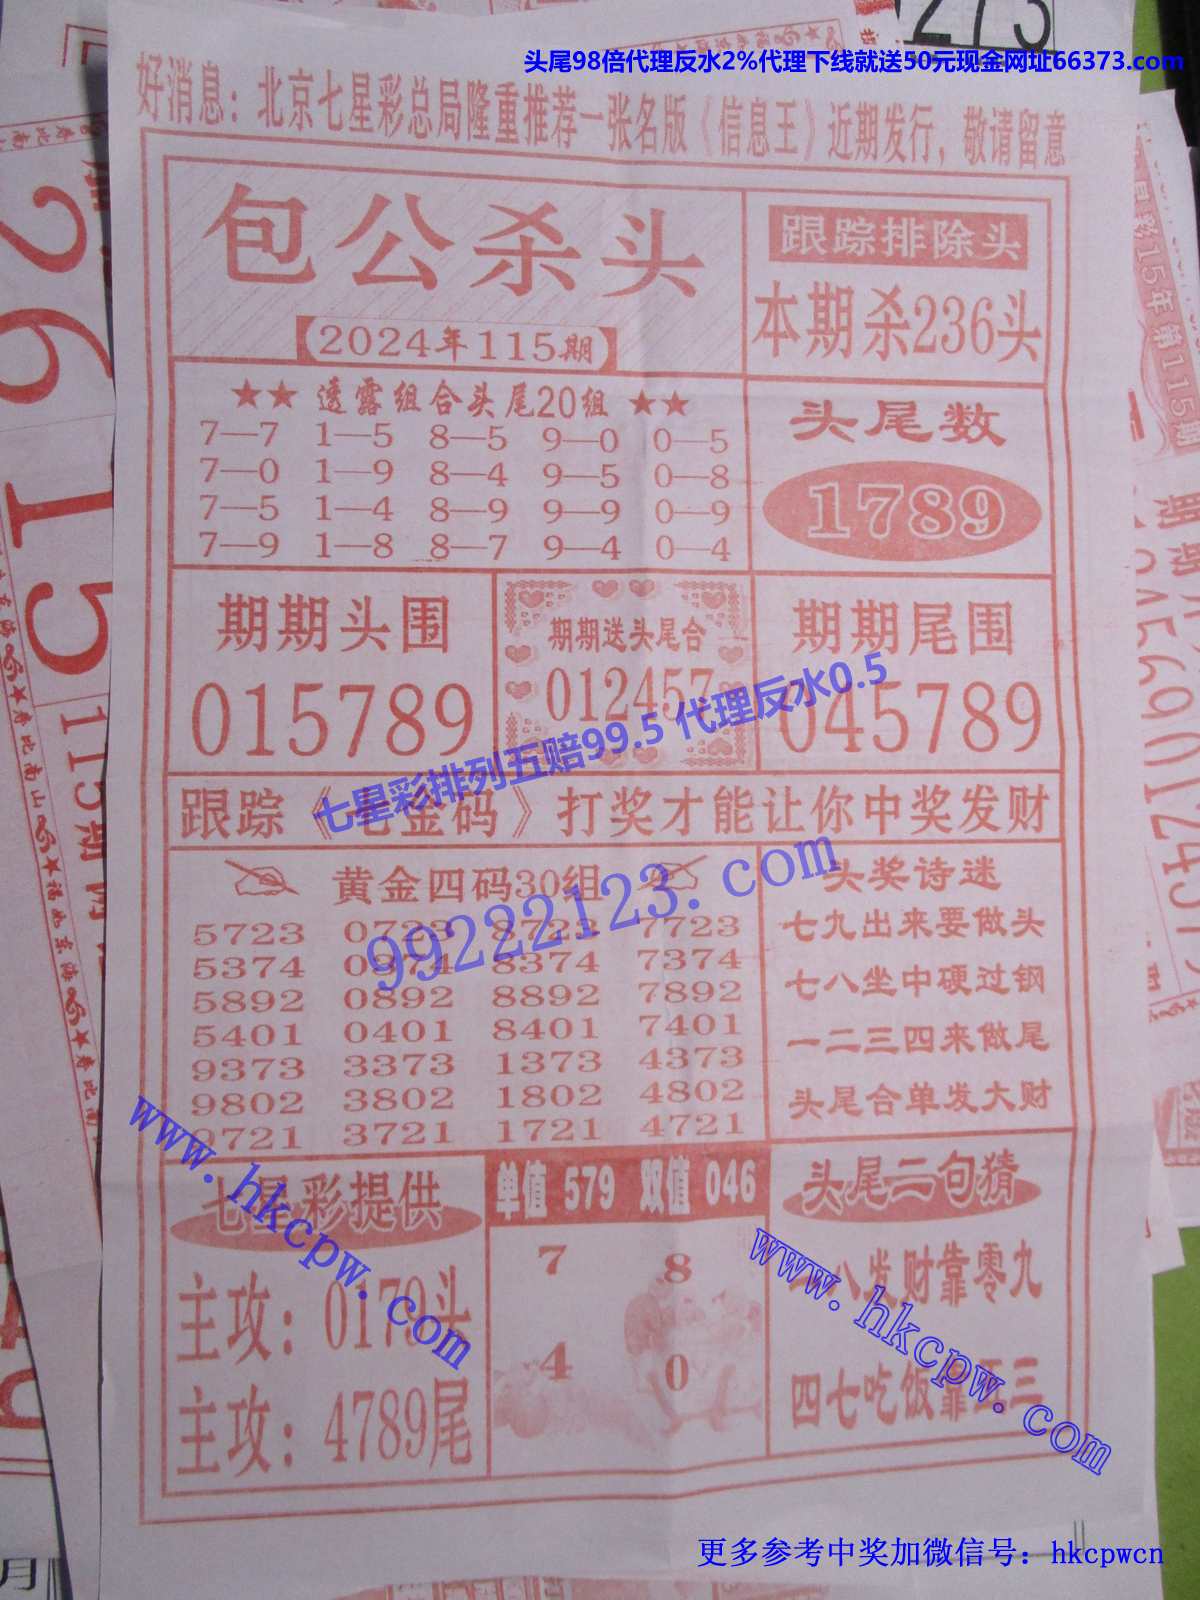 273
头尾98倍代理反水2%代理下线就送50元现金网址66373.com
好消息：北京七星彩总局隆重推荐一张名版《信息王》近期发行，敬请留意
包公杀头
【2024年115期】
跟踪排除头
本期杀236头
★★ 透露组合头尾20组 ★★
7—7 1—5 8—5 9—0 0—5
7—0 1—9 8—4 9—5 0—8
7—5 1—4 8—9 9—9 0—9
7—9 1—8 8—7 9—4 0—4
头尾数
1789
期期头围
015789
期期送头尾合
012457
期期尾围
045789
七星彩排列五赔99.5 代理反水0.5
跟踪《七金码》打奖才能让你中奖发财
黄金四码30组
5723 0723 8723 7723
5374 0374 8374 7374
5892 0892 8892 7892
5401 0401 8401 7401
9373 3373 1373 4373
9802 3802 1802 4802
9721 3721 1721 4721
99222123.com
头奖诗迷
七九出来要做头
七八坐中硬过钢
一二三四来做尾
头尾合单发大财
七星彩提供
主攻：0179头
主攻：4789尾
www.hkcpw.com
单值 579 双值 046
7 8
4 0
头尾二句猜
一八发财靠零九
四七吃饭靠五三
www.hkcpw.com
更多参考中奖加微信号：hkcpwcn
2615
115期
彩15年第115期